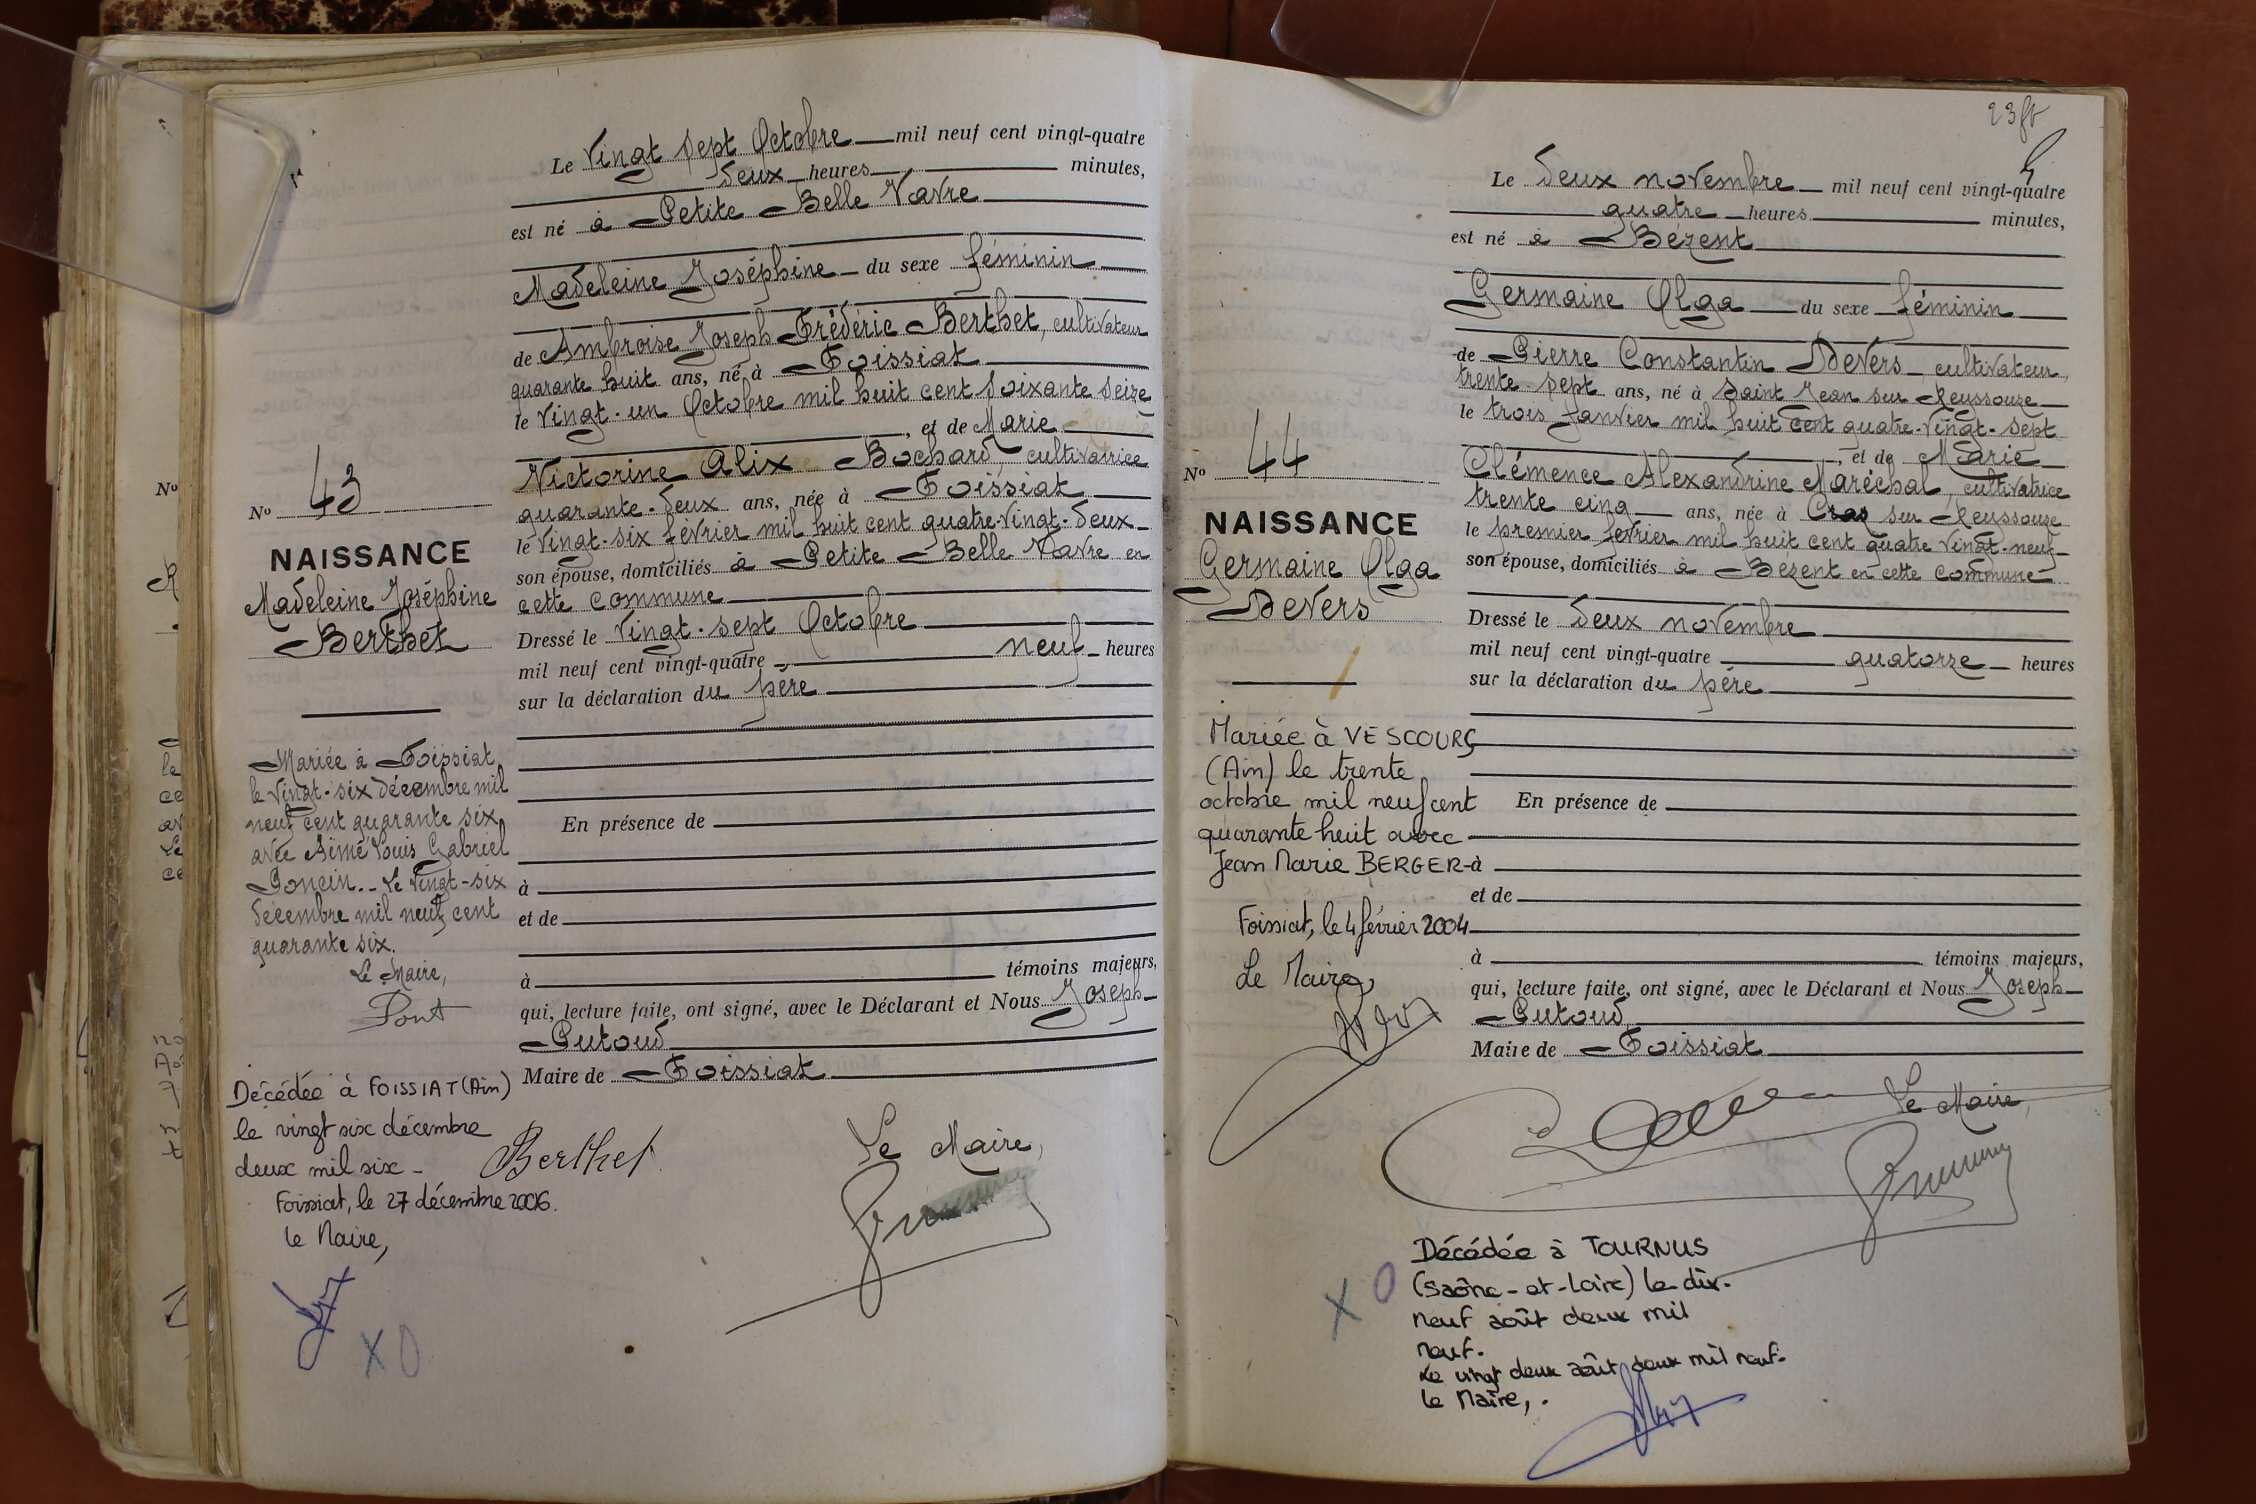 Le Vingt sept Octobre mil neuf cent vingt-quatre
deux heures minutes,
est né à Petite Belle Vavre
Madeleine Joséphine du sexe féminin
de Ambroise Joseph Frédéric Berthet, cultivateur
quarante huit ans, né à Foissiat
le vingt-un Octobre mil huit cent soixante seize
, et de Marie
Victorine Alix Bochard, cultivatrice
quarante-deux ans, née à Foissiat
le vingt-six février mil huit cent quatre-vingt-deux
son épouse, domiciliés à Petite Belle Vavre en
cette commune
Dressé le vingt-sept Octobre
mil neuf cent vingt-quatre neuf heures
sur la déclaration du père
En présence de
à
et de
à témoins majeurs,
qui, lecture faite, ont signé, avec le Déclarant et Nous Joseph
Putoud
Maire de Foissiat
Berthet
Le Maire,
No 43
NAISSANCE
Madeleine Joséphine
Berthet
Mariée à Foissiat
le vingt-six décembre mil
neuf cent quarante six
avec Aimé Louis Gabriel
Poncin.- Le vingt-six
décembre mil neuf cent
quarante six.
Le Maire,
Pont
Décédée à FOISSIAT (Ain)
le vingt six décembre
deux mil six -
Foissiat, le 27 décembre 2006.
le Maire,
X O
23
Le deux novembre mil neuf cent vingt-quatre
quatre heures minutes,
est né à Bézent
Germaine Olga du sexe féminin
de Pierre Constantin Devers, cultivateur,
trente-sept ans, né à Saint Jean sur Reyssouze
le trois janvier mil huit cent quatre-vingt-sept
, et de Marie
Clémence Alexandrine Maréchal, cultivatrice
trente cinq ans, née à Cras sur Reyssouze
le premier février mil huit cent quatre vingt-neuf
son épouse, domiciliés à Bézent en cette commune
Dressé le deux novembre
mil neuf cent vingt-quatre quatorze heures
sur la déclaration du père
En présence de
à
et de
à témoins majeurs,
qui, lecture faite, ont signé, avec le Déclarant et Nous Joseph
Putoud
Maire de Foissiat
Le Maire,
No 44
NAISSANCE
Germaine Olga
Devers
Mariée à VESCOURS
(Ain) le trente
octobre mil neuf cent
quarante huit avec
Jean Marie BERGER
Foissiat, le 4 février 2004
Le Maire,
X O
Décédée à TOURNUS
(Saône-et-Loire) le dix-
neuf août deux mil
neuf.
Le vingt deux août deux mil neuf.
le Maire,